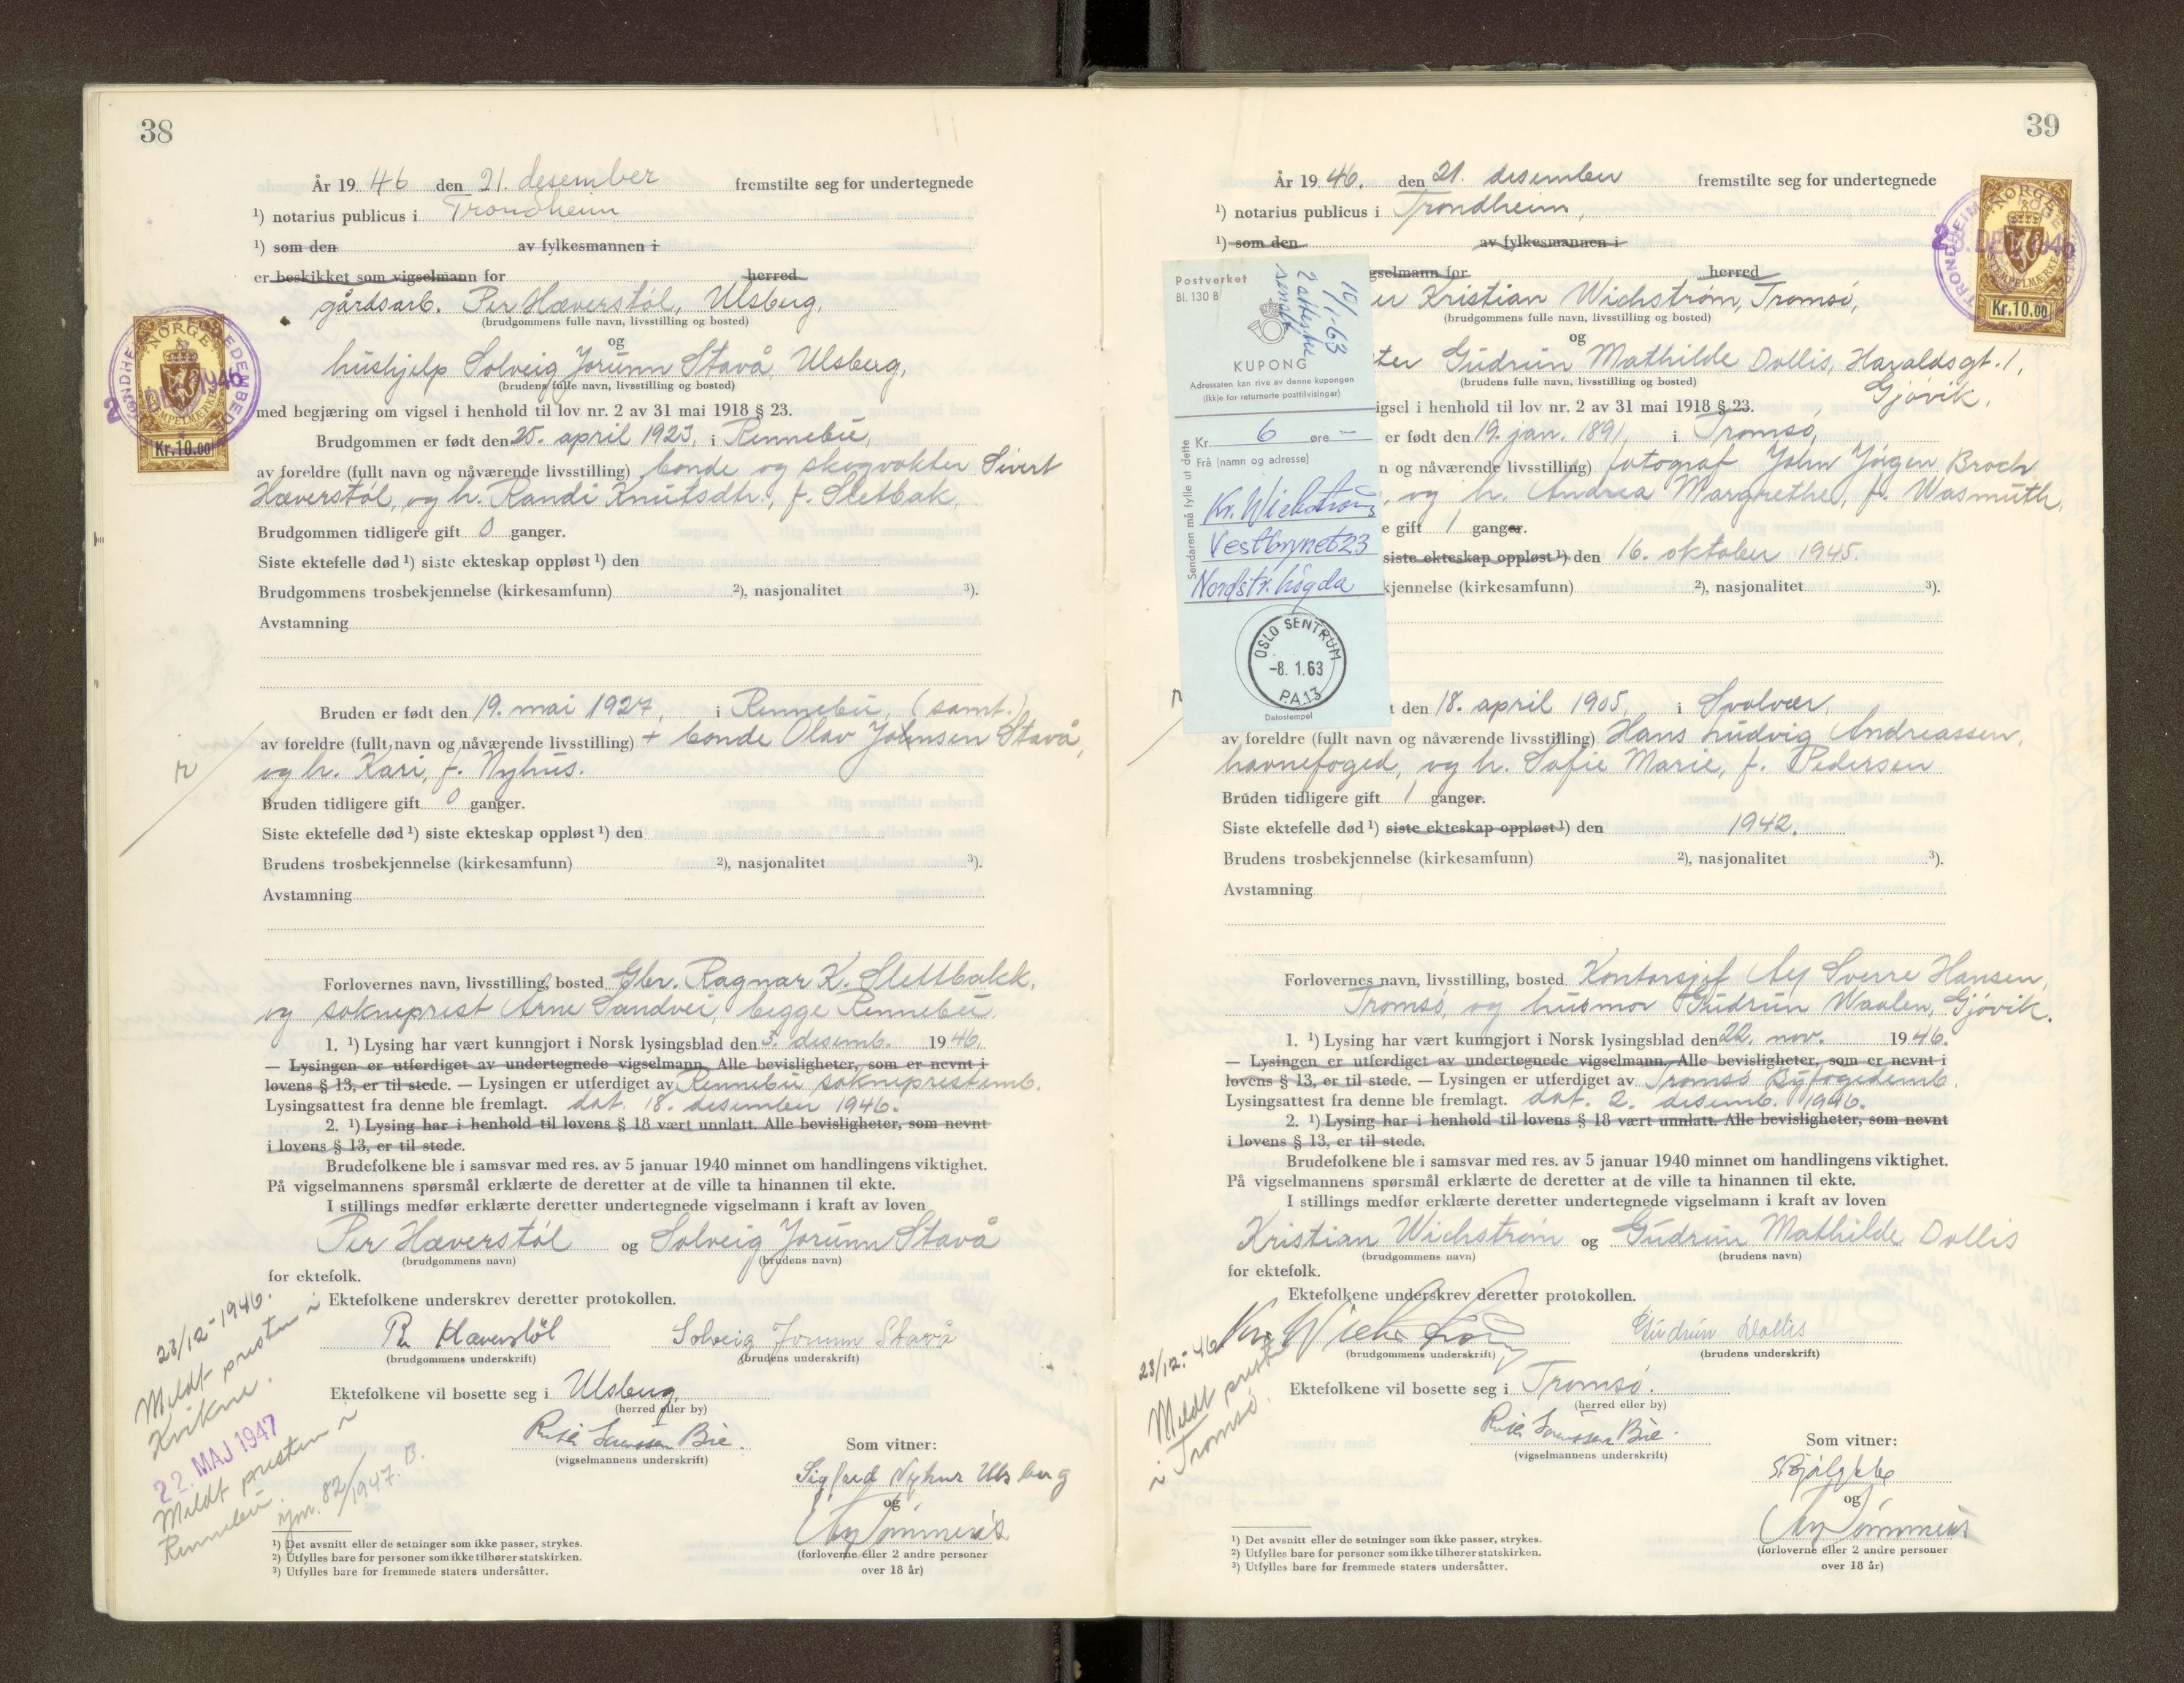 38
År 19 46 den 21. desember fremstilte seg for undertegnede
¹) notarius publicus i Trondheim
¹) som den av fylkesmannen i
er beskikket som vigselmann for herred
gårdsarb. Per Hæverstøl, Ulsberg,
(brudgommens fulle navn, livsstilling og bosted)
og
hushjelp Solveig Jorunn Stavå, Ulsberg,
(brudens fulle navn, livsstilling og bosted)
med begjæring om vigsel i henhold til lov nr. 2 av 31 mai 1918 § 23.
Brudgommen er født den 25. april 1923, i Rennebu,
av foreldre (fullt navn og nåværende livsstilling) bonde og skogvokter Sivert
Hæverstøl, og h. Randi Knutsdtr., f. Sletbak,
Brudgommen tidligere gift 0 ganger.
Siste ektefelle død ¹) siste ekteskap oppløst ¹) den
Brudgommens trosbekjennelse (kirkesamfunn) ²), nasjonalitet ³).
Avstamning
Bruden er født den 19. mai 1927, i Rennebu, (samt.)
av foreldre (fullt navn og nåværende livsstilling) + bonde Olav Johnsen Stavå,
og h. Kari, f. Nyhus.
Bruden tidligere gift 0 ganger.
Siste ektefelle død ¹) siste ekteskap oppløst ¹) den
Brudens trosbekjennelse (kirkesamfunn) ²), nasjonalitet ³).
Avstamning
Forlovernes navn, livsstilling, bosted Gbr. Ragnar K. Slettbakk,
og sokneprest Arne Sandvei, begge Rennebu.
1. ¹) Lysing har vært kunngjort i Norsk lysingsblad den 5. desemb. 19 46.
— Lysingen er utferdiget av undertegnede vigselmann. Alle bevisligheter, som er nevnt i
lovens § 13, er til stede. — Lysingen er utferdiget av Rennebu sokneprestemb.
Lysingsattest fra denne ble fremlagt. dat. 18. desember 1946.
2. ¹) Lysing har i henhold til lovens § 18 vært unnlatt. Alle bevisligheter, som nevnt
i lovens § 13, er til stede.
Brudefolkene ble i samsvar med res. av 5 januar 1940 minnet om handlingens viktighet.
På vigselmannens spørsmål erklærte de deretter at de ville ta hinannen til ekte.
I stillings medfør erklærte deretter undertegnede vigselmann i kraft av loven
Per Hæverstøl og Solveig Jorunn Stavå
(brudgommens navn) (brudens navn)
for ektefolk.
Ektefolkene underskrev deretter protokollen.
Per Hæverstøl Solveig Jorunn Stavå
(brudgommens underskrift) (brudens underskrift)
Ektefolkene vil bosette seg i Ulsberg
(herred eller by)
(vigselmannens underskrift)
Som vitner:
Sigfard Nyhus Ulsberg
og
(forloverne eller 2 andre personer
over 18 år)
23/12-1946.
Meldt presten i
Kvikne.
22. MAJ 1947
Meldt presten i
Rennebu.
jnr. 82/1947. B.
¹) Det avsnitt eller de setninger som ikke passer, strykes.
²) Utfylles bare for personer som ikke tilhører statskirken.
³) Utfylles bare for fremmede staters undersåtter.
NORGE
Kr.10.00
39
År 19 46. den 21. desember fremstilte seg for undertegnede
¹) notarius publicus i Trondheim,
¹) som den av fylkesmannen i
gselmann for herred
er Kristian Wichstrøm, Tromsø,
(brudgommens fulle navn, livsstilling og bosted)
og
ter Gudrun Mathilde Dollis, Haraldsgt. 1,
Gjøvik.
(brudens fulle navn, livsstilling og bosted)
igsel i henhold til lov nr. 2 av 31 mai 1918 § 23.
er født den 19. jan. 1891, i Tromsø,
n og nåværende livsstilling) fotograf John Jørgen Broch
, og h. Andrea Margrethe, f. Wasmuth.
e gift 1 ganger.
siste ekteskap oppløst ¹) den 16. oktober 1945.
kjennelse (kirkesamfunn) ²), nasjonalitet ³).
t den 18. april 1905, i Svolvær,
av foreldre (fullt navn og nåværende livsstilling) Hans Ludvig Andreassen,
havnefoged, og h. Sofie Marie, f. Pedersen
Bruden tidligere gift 1 ganger.
Siste ektefelle død ¹) siste ekteskap oppløst ¹) den 1942.
Brudens trosbekjennelse (kirkesamfunn) ²), nasjonalitet ³).
Avstamning
Forlovernes navn, livsstilling, bosted Kontorsjef Sverre Hansen,
Tromsø, og husmor Gudrun Waalen, Gjøvik.
1. ¹) Lysing har vært kunngjort i Norsk lysingsblad den 22. nov. 19 46.
— Lysingen er utferdiget av undertegnede vigselmann. Alle bevisligheter, som er nevnt i
lovens § 13, er til stede. — Lysingen er utferdiget av Tromsø Byfogedemb.
Lysingsattest fra denne ble fremlagt. dat. 2. desemb. 1946.
2. ¹) Lysing har i henhold til lovens § 18 vært unnlatt. Alle bevisligheter, som nevnt
i lovens § 13, er til stede.
Brudefolkene ble i samsvar med res. av 5 januar 1940 minnet om handlingens viktighet.
På vigselmannens spørsmål erklærte de deretter at de ville ta hinannen til ekte.
I stillings medfør erklærte deretter undertegnede vigselmann i kraft av loven
Kristian Wichstrøm og Gudrun Mathilde Dollis
(brudgommens navn) (brudens navn)
for ektefolk.
Ektefolkene underskrev deretter protokollen.
Kr. Wichstrøm Gudrun Dollis
(brudgommens underskrift) (brudens underskrift)
Ektefolkene vil bosette seg i Tromsø.
(herred eller by)
(vigselmannens underskrift)
Som vitner:
og
(forloverne eller 2 andre personer
over 18 år)
23/12-46
Meldt presten
i Tromsø.
¹) Det avsnitt eller de setninger som ikke passer, strykes.
²) Utfylles bare for personer som ikke tilhører statskirken.
³) Utfylles bare for fremmede staters undersåtter.
NORGE
Kr.10.00
Postverket
Bl. 130 B
10/1-63
2 attester
sendt
KUPONG
Adressaten kan rive av denne kupongen
(Ikkje for returnerte posttilvisingar)
Sendaren må fylle ut dette
Kr. 6 øre —
Frå (namn og adresse)
Kr. Wichstrøm
Vestbrynet 23
Nordstr. høgda
OSLO SENTRUM
-8. 1.63
P.A.13
Datostempel